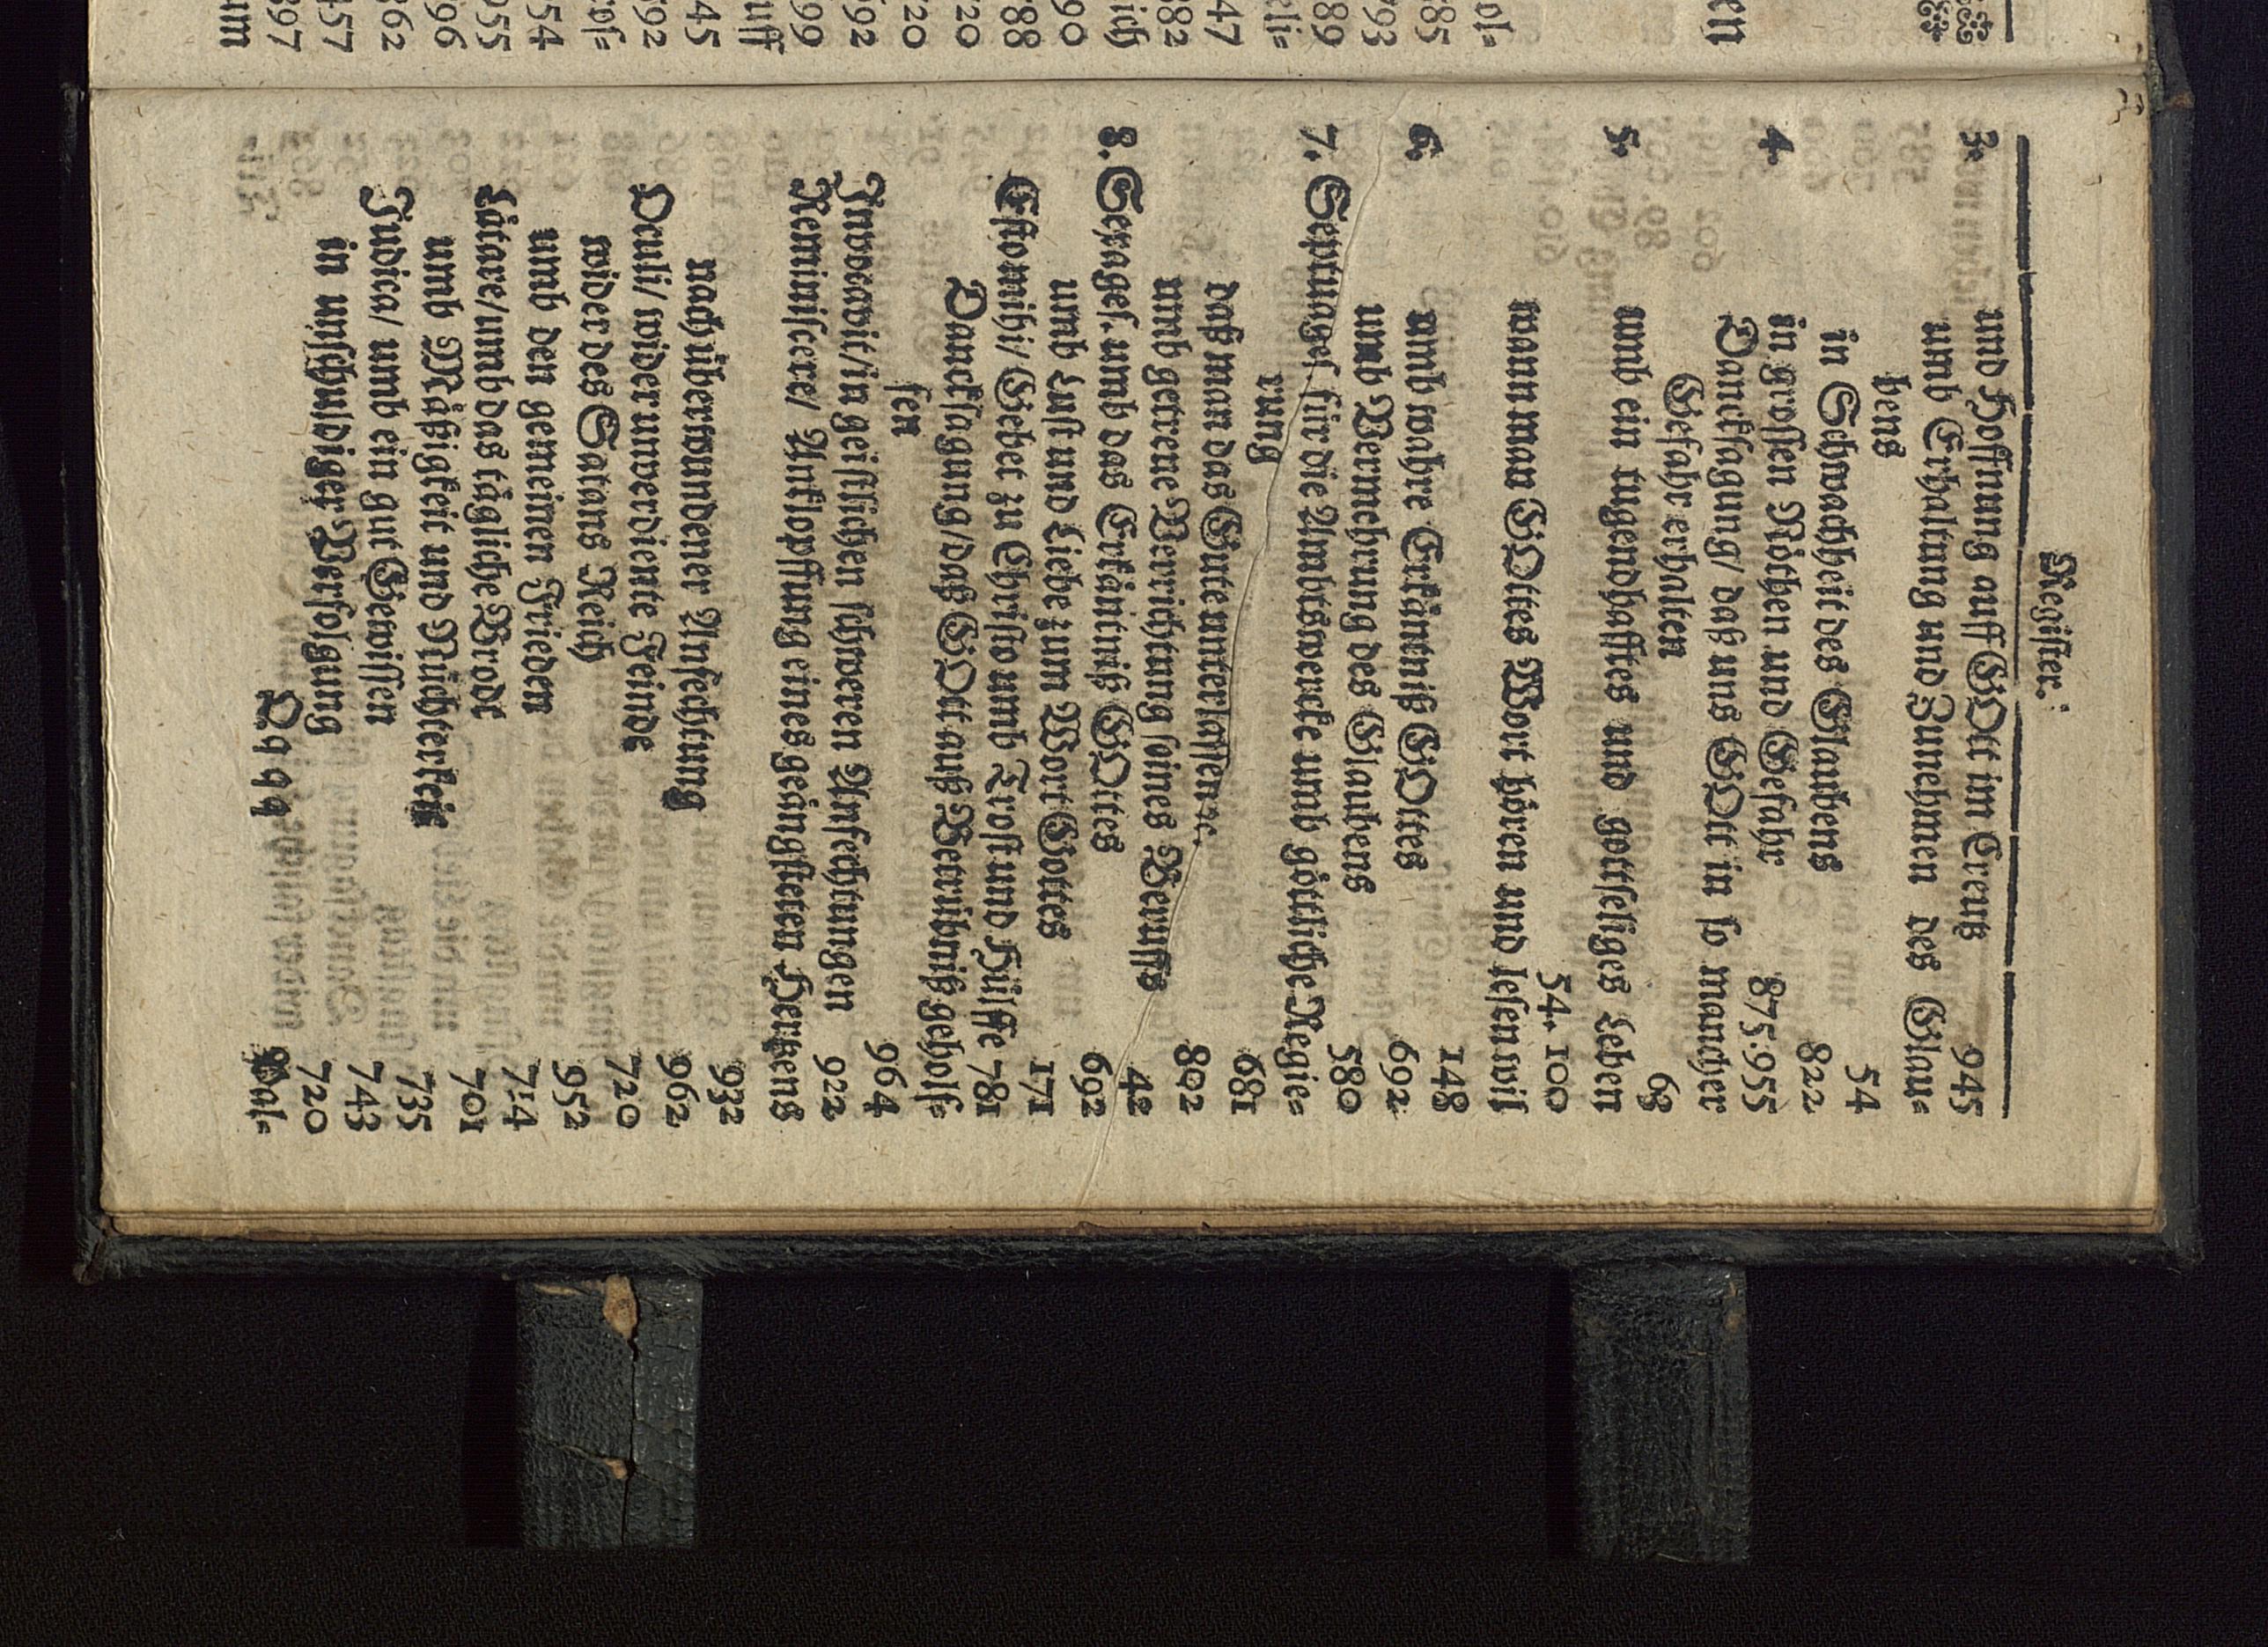 en
ol=
85
793
89
eli=
47
882
ich
90
720
88
720
692
99
uff
45
592
54
955
96
862
457
897
um
Register.
3. und Hoffnung auff GOtt im Creutz 945
umb Erhaltung und Zunehmen des Glau=
bens 54
in Schwachheit des Glaubens 822
4. in grossen Nöthen und Gefahr 875.955
Dancksagung/ daß uns GOtt in so mancher
Gefahr erhalten 68
5. umb ein tugendhafftes und gottseliges Leben
54. 100
wann man GOttes Wort hören und lesen wil
148
6. umb wahre Erkäntniß GOttes 692
umb Vermehrung des Glaubens 580
7. Septuages. für die Ambtswercke umb göttliche Regie=
rung 681
daß man das Gute unterlassen/ ꝛc. 802
umb getreue Verrichtung seines Beruffs 42
8. Sexages. umb das Erkäntniß GOttes 692
umb Lust und Liebe zum Wort Gottes 171
Estomihi/ Gebet zu Christo umb Trost und Hülffe 781
Dancksagung/ daß GOtt auß Betrübniß geholf=
fen 964
Invocavit/ in geistlichen schweren Anfechtungen 922
Reminiscere/ Anklopffung eines geängsteten Hertzens
932
nach überwundener Anfechtung 962
Oculi/ wider unverdiente Feinde 720
wider des Satans Reich 952
umb den gemeinen Frieden 714
Lätare/ umb das tägliche Brodt 701
umb Mässigkeit und Nüchterkeit 735
Judica/ umb ein gut Gewissen 743
in unschuldiger Verfolgung 720
Qqqq Pal=